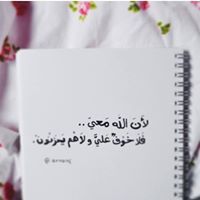 لأنَّ الله مَعيَ ..
فَلا خَوْفٌ عَليَّ ولا هُم يَحزنُونَ.